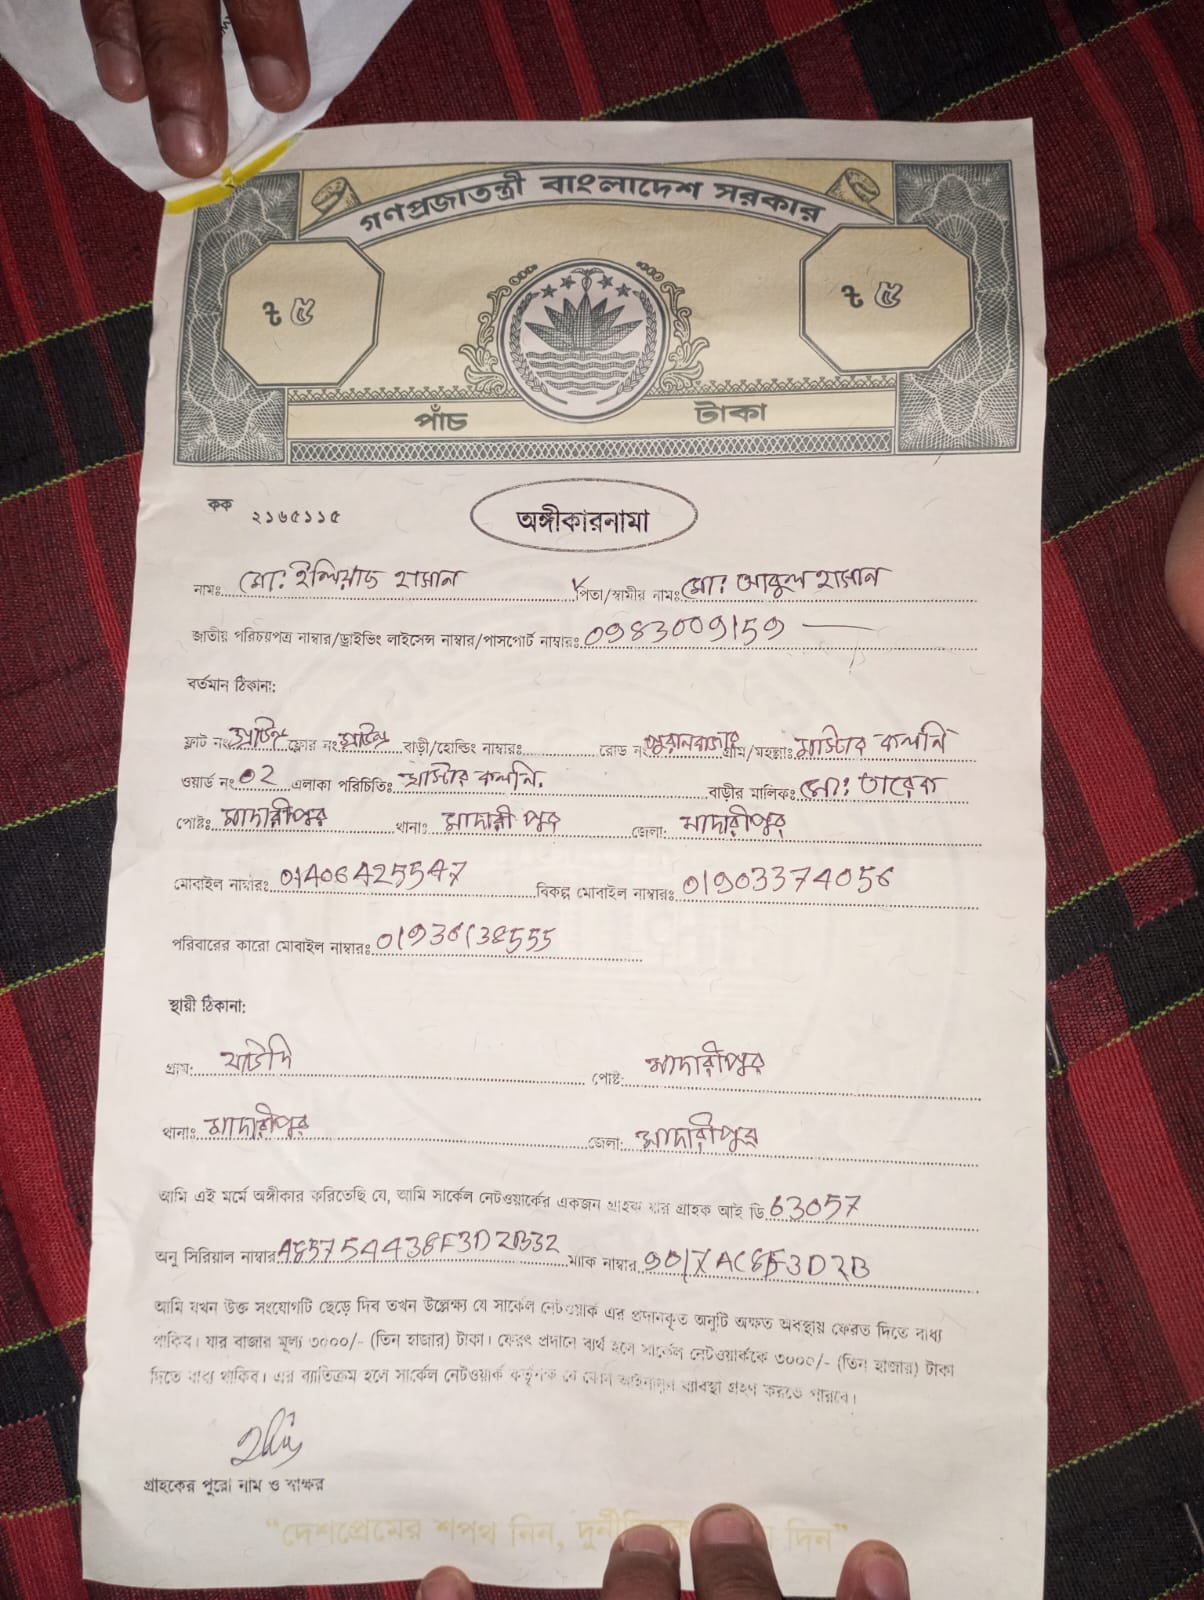 গণপ্রজাতন্ত্রী বাংলাদেশ সরকার
৳ ৫ ৳ ৫
পাঁচ টাকা
কক ২১৬৫১১৫
অঙ্গীকারনামা
নামঃ মোঃ ইলিয়াছ হাসান পিতা/স্বামীর নামঃ মোঃ আবুল হাসান
জাতীয় পরিচয়পত্র নাম্বার/ড্রাইভিং লাইসেন্স নাম্বার/পাসপোর্ট নাম্বারঃ 0983009159
বর্তমান ঠিকানা:
ফ্লাট নং ফ্লোর নং বাড়ী/হোল্ডিং নাম্বারঃ রোড নং পুরানবাজার গ্রাম/মহল্লাঃ মাস্টার কলনি
ওয়ার্ড নং 02 এলাকা পরিচিতিঃ মাস্টার কলনি. বাড়ীর মালিকঃ মোঃ তারেক
পোষ্টঃ মাদারীপুর থানাঃ মাদারীপুর জেলা: মাদারীপুর
মোবাইল নাম্বারঃ 01406425547 বিকল্প মোবাইল নাম্বারঃ 01903374056
পরিবারের কারো মোবাইল নাম্বারঃ 01936138555
স্থায়ী ঠিকানা:
গ্রাম: পোষ্ট: মাদারীপুর
থানাঃ মাদারীপুর জেলা: মাদারীপুর
আমি এই মর্মে অঙ্গীকার করিতেছি যে, আমি সার্কেল নেটওয়ার্কের একজন গ্রাহক যার গ্রাহক আই ডি 63057
অনু সিরিয়াল নাম্বার 485754438F3D2B32 ম্যাক নাম্বার 9017AC8F3D2B
আমি যখন উক্ত সংযোগটি ছেড়ে দিব তখন উল্লেক্ষ্য যে সার্কেল নেটওয়ার্ক এর প্রদানকৃত অনুটি অক্ষত অবস্থায় ফেরত দিতে বাধ্য
থাকিব। যার বাজার মূল্য ৩০০০/- (তিন হাজার) টাকা। ফেরৎ প্রদানে ব্যর্থ হলে সার্কেল নেটওয়ার্ককে ৩০০০/- (তিন হাজার) টাকা
দিতে বাধ্য থাকিব। এর ব্যাতিক্রম হলে সার্কেল নেটওয়ার্ক কর্তৃপক্ষ যে কোন আইনানুগ ব্যাবস্থা গ্রহণ করতে পারবে।
গ্রাহকের পুরো নাম ও স্বাক্ষর
"দেশপ্রেমের শপথ নিন, দিন"